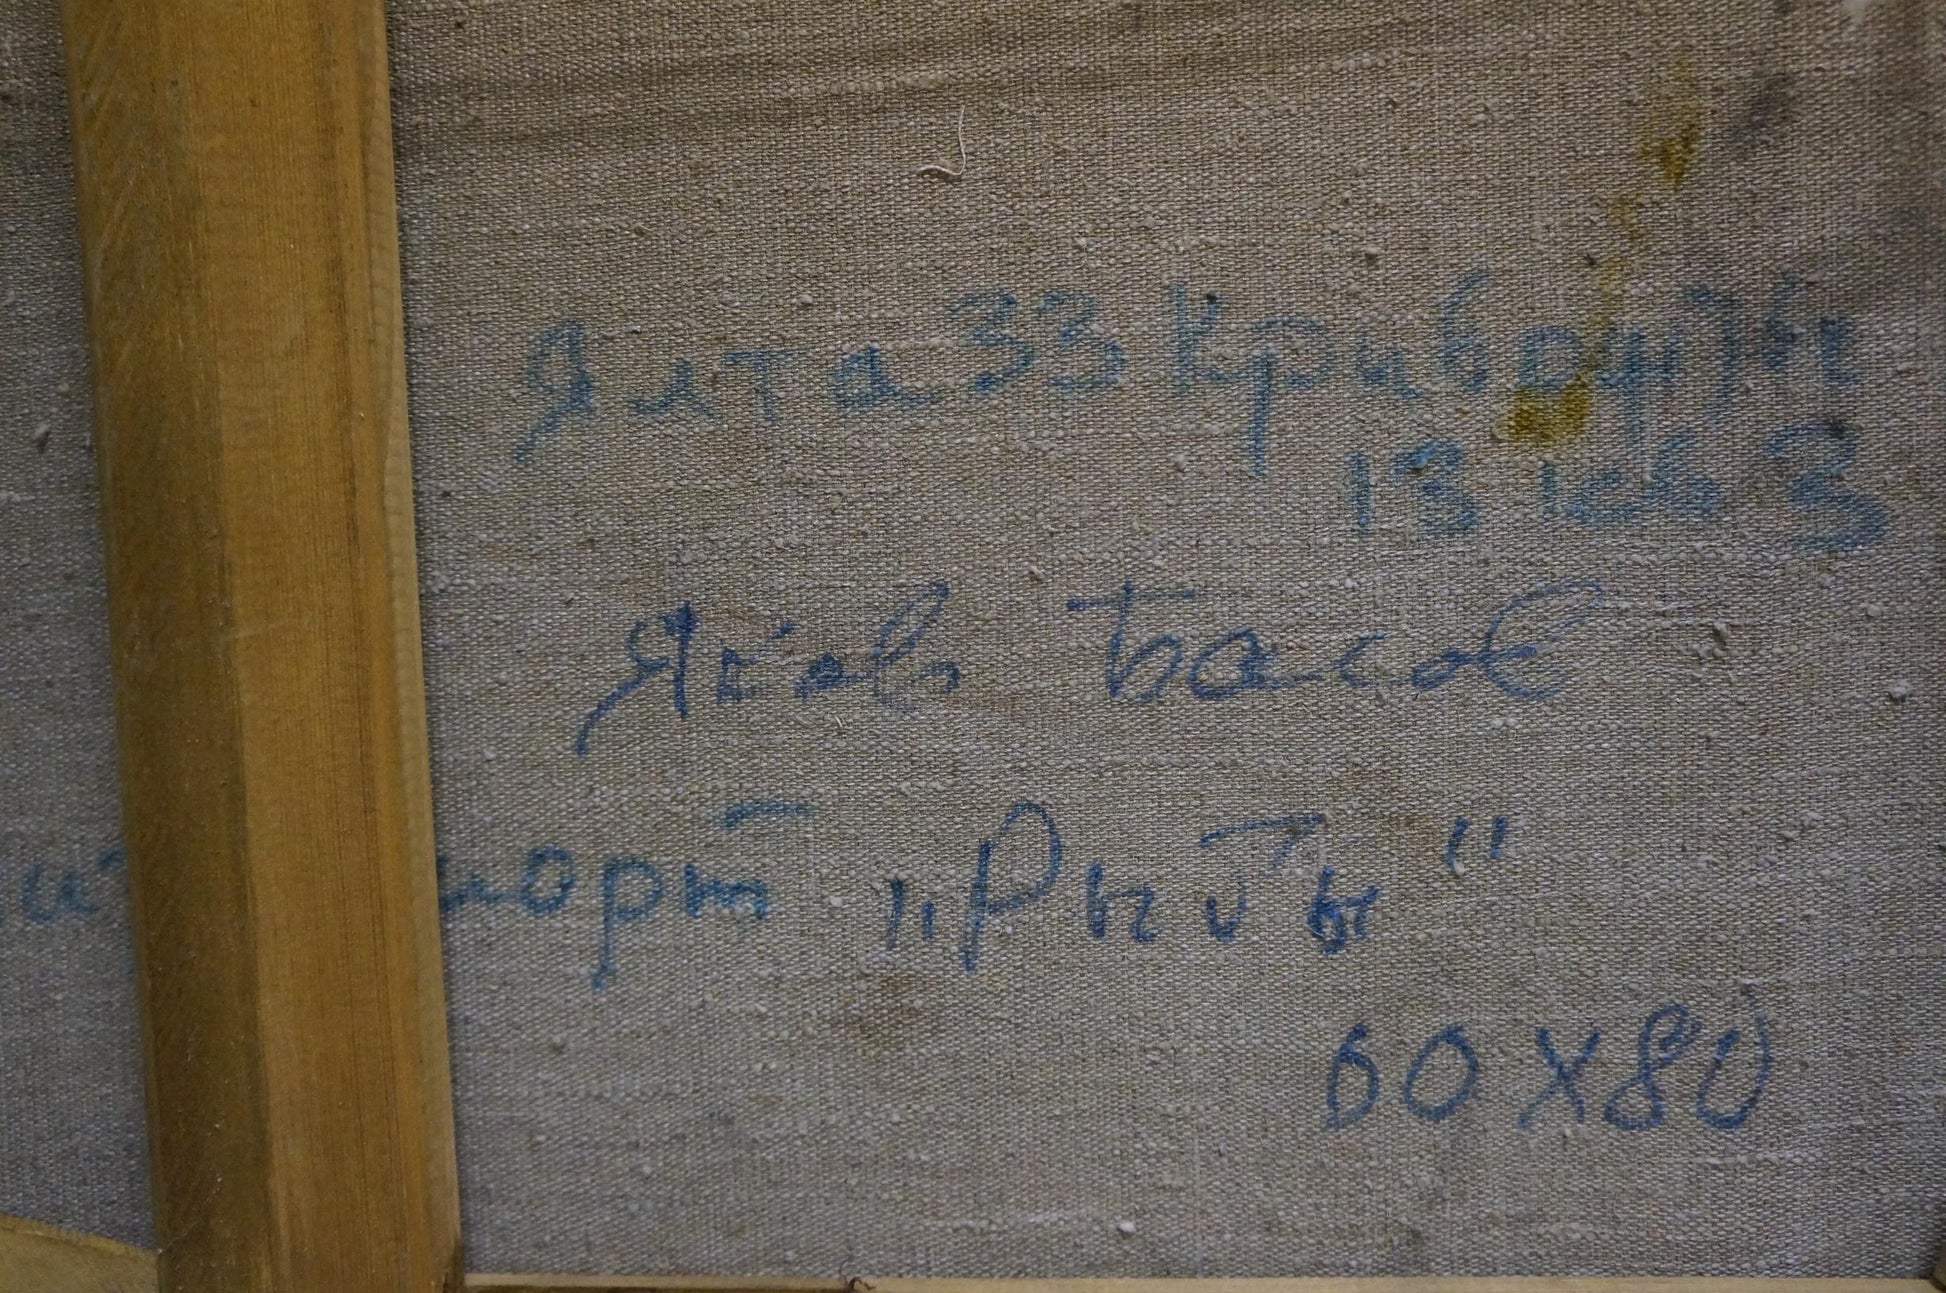 Ялта 33 Кривошты
13 кв 3
Яков Басов
нат морт „Рыбы"
60х80